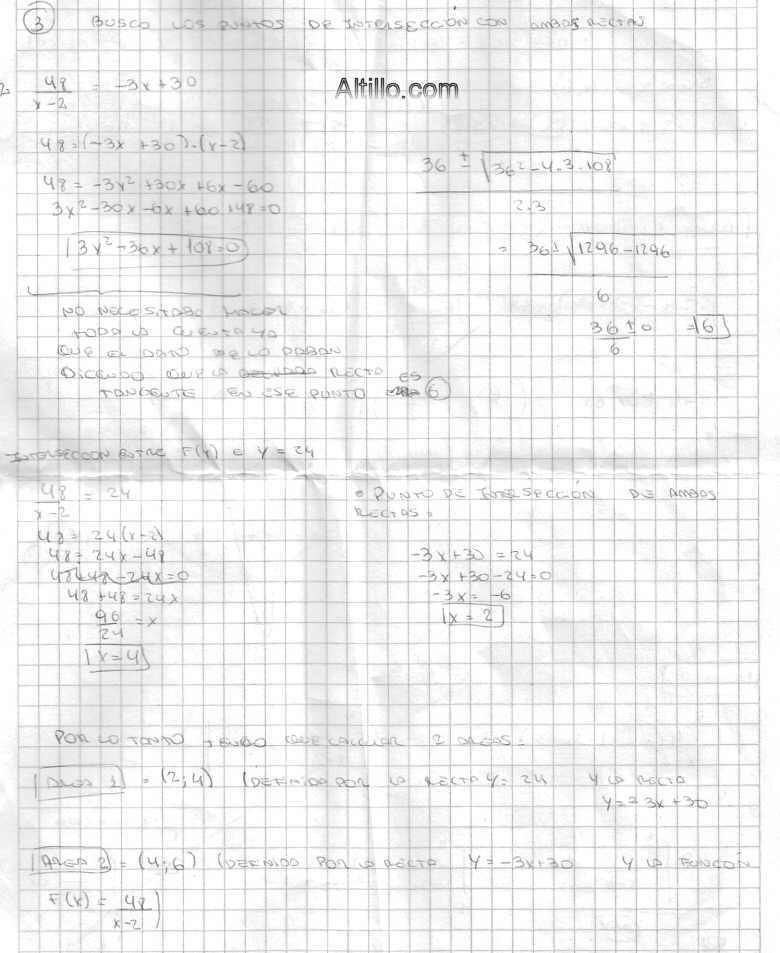 3 BUSCO LOS PUNTOS DE INTERSECCIÓN CON AMBAS RECTAS
48/(x-2) = -3x+30
Altillo.com
48=(-3x+30)·(x-2)
48 = -3x²+30x+6x-60
3x²-30x-6x+60+48=0
3x²-36x+108=0
36 ± √(36²-4·3·108)
2·3
= 36 ± √(1296-1296)
6
36±0 = 6
6
NO NECESITABA HACER
TODA LA CUENTA YA
QUE EL DATO ME LO DABAN
DICIENDO QUE LA RECTA ES
TANGENTE EN ESE PUNTO 6
INTERSECCION ENTRE F(x) e y=24
48/(x-2) = 24
48 = 24(x-2)
48 = 24x-48
48+48-24x=0
48+48=24x
96/24 = x
x=4
PUNTO DE INTERSECCIÓN DE AMBAS
RECTAS:
-3x+30=24
-3x+30-24=0
-3x=-6
x=2
POR LO TANTO TENGO QUE CALCULAR 2 AREAS:
AREA 1 = (2;4) (DEFINIDA POR LA RECTA y=24 Y LA RECTA
y=-3x+30
AREA 2 = (4;6) (DEFINIDA POR LA RECTA y=-3x+30 Y LA FUNCIÓN
F(x) = 48/(x-2))